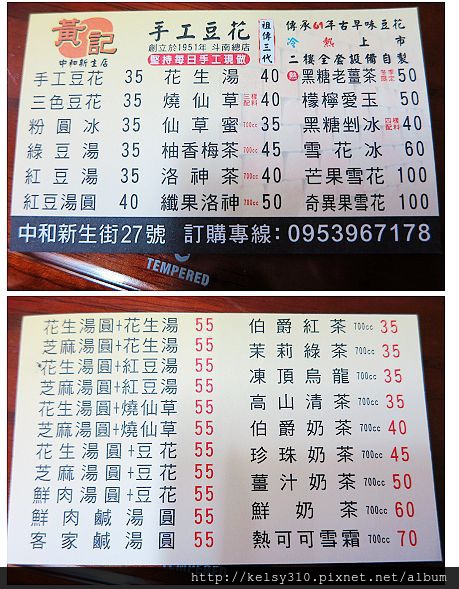 黃記
中和新生店
手工豆花
創立於1951年 斗南總店
堅持每日手工現做
祖傳三代
傳承61年古早味豆花
冷熱上市
二樓全套設備自製
手工豆花 35
三色豆花 40
粉圓冰 35
綠豆湯 35
紅豆湯 35
紅豆湯圓 40
花生湯 40
燒仙草 三配樣料 40
仙草蜜 700cc 35
柚香梅茶 700cc 45
洛神茶 700cc 40
纖果洛神 700cc 50
熱 黑糖老薑茶 50
檸檬愛玉 50
黑糖剉冰 四配樣料 40
雪花冰 60
芒果雪花 100
奇異果雪花 100
中和新生街27號 訂購專線:0953967178
TEMPERED
花生湯圓+花生湯 55
芝麻湯圓+花生湯 55
花生湯圓+紅豆湯 55
芝麻湯圓+紅豆湯 55
花生湯圓+燒仙草 55
芝麻湯圓+燒仙草 55
花生湯圓+豆花 55
芝麻湯圓+豆花 55
鮮肉湯圓+豆花 55
鮮肉鹹湯圓 55
客家鹹湯圓 55
伯爵紅茶 700cc 35
茉莉綠茶 700cc 35
凍頂烏龍 700cc 35
高山清茶 700cc 35
伯爵奶茶 700cc 40
珍珠奶茶 700cc 45
薑汁奶茶 700cc 50
鮮奶茶 700cc 60
熱可可雪霜 700cc 70
http://kelsy310.pixnet.net/album